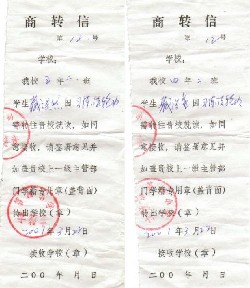 商转信
第 号
学校：
我校五年 班
学生 因
需转往贵校就读，如同
意接收，请签署意见并
加盖贵校上一级主管部
门学籍专用章（盖背面）
转出学校（章）
2001年3月 日
接收学校（章）
二00 年 月 日
商转信
第 号
学校：
我校四年二班
学生 因
需转往贵校就读，如同
意接收，请签署意见并
加盖贵校上一级主管部
门学籍专用章（盖背面）
转出学校（章）
2001年3月 日
接收学校（章）
二00 年 月 日